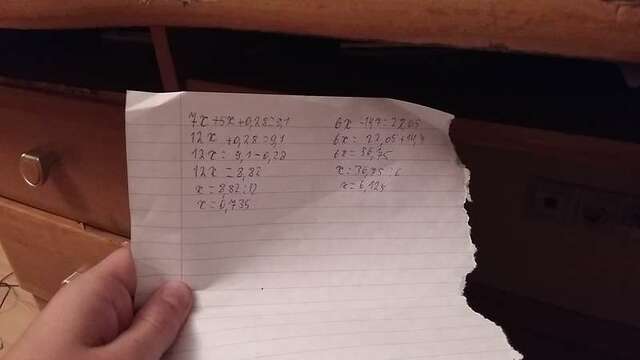 7x+5x+0,28=9,1
12x+0,28=9,1
12x=9,1-0,28
12x=8,82
x=8,82:12
x=0,735
6x-14,7=22,05
6x=22,05+14,7
6x=36,75
x=36,75:6
x=6,125